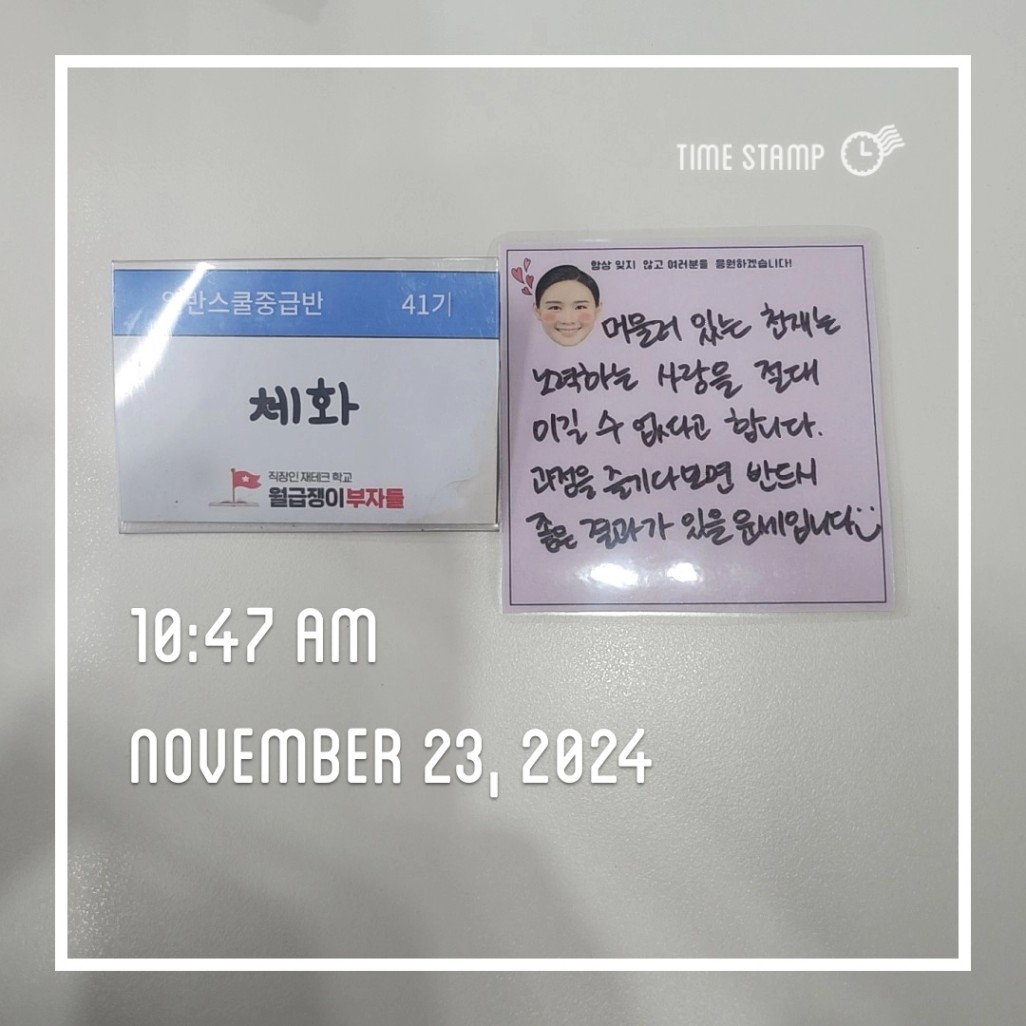 TIME STAMP
반스쿨중급반 41기
체화
직장인 재테크 학교
월급쟁이부자들
항상 잊지 않고 여러분들 응원하겠습니다!
머물러 있는 천재는
노력하는 사람을 절대
이길 수 없다고 합니다.
과정을 즐기다보면 반드시
좋은 결과가 있을 운세입니다
10:47 AM
NOVEMBER 23, 2024